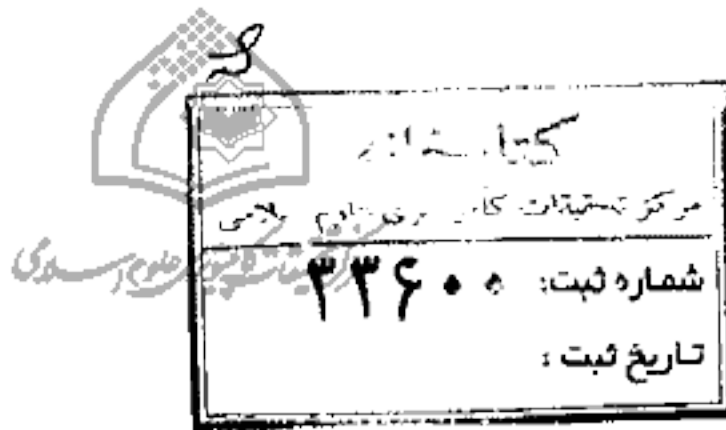 کتابخانه
مرکز تحقیقات کامپیوتری علوم اسلامی
شماره ثبت: ۳۳۶۰۰
تاریخ ثبت :
مرکز تحقیقات کامپیوتری علوم اسلامی